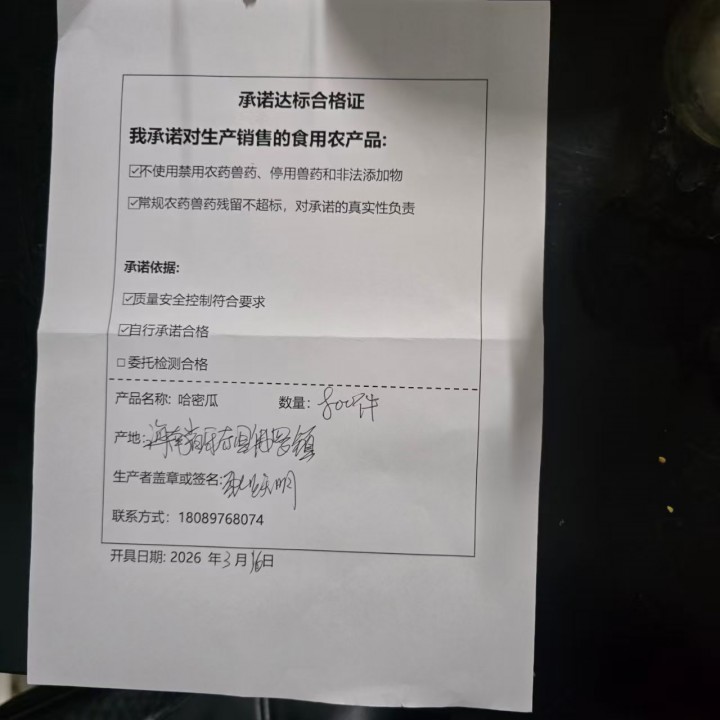 承诺达标合格证
我承诺对生产销售的食用农产品:
☑不使用禁用农药兽药、停用兽药和非法添加物
☑常规农药兽药残留不超标，对承诺的真实性负责
承诺依据:
☑质量安全控制符合要求
☑自行承诺合格
□ 委托检测合格
产品名称: 哈密瓜 数量: 800件
产地: 海南省乐东县佛罗镇
生产者盖章或签名:
联系方式: 18089768074
开具日期: 2026 年 3 月 16日